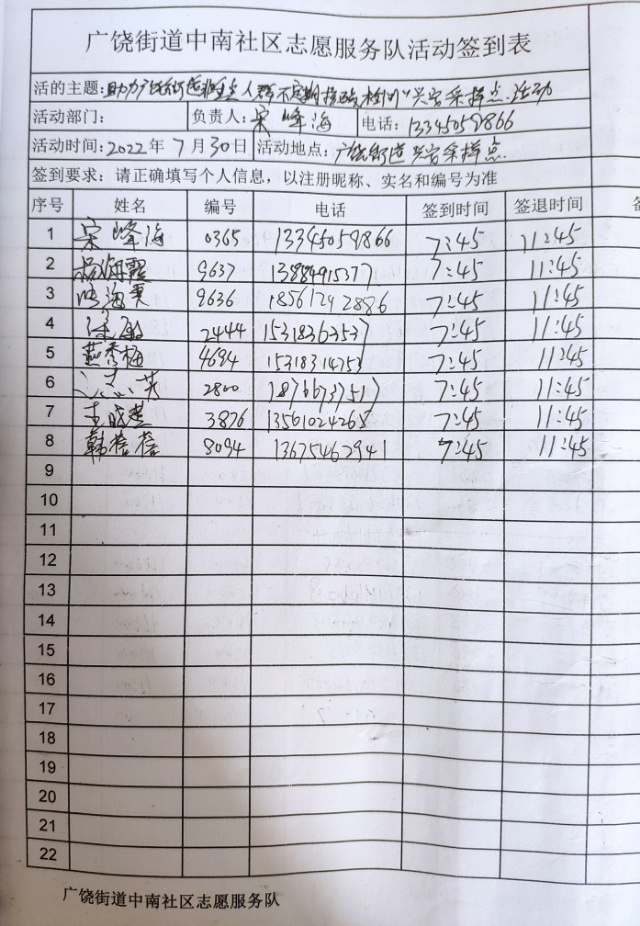 广饶街道中南社区志愿服务队活动签到表
活的主题：助力广饶街道重点人群不定期核酸检测"兴安采样点活动
活动部门： 负责人：宋峰海 电话：13345059866
活动时间：2022年7月30日 活动地点：广饶街道兴安采样点
签到要求：请正确填写个人信息，以注册昵称、实名和编号为准
序号 姓名 编号 电话 签到时间 签退时间
1 宋峰海 0365 13345059866 7:45 11:45
2 9637 13884915377 7:45 11:45
3 9636 18561292886 7:45 11:45
4 2444 15318363537 7:45 11:45
5 燕秀梅 4694 15318314753 7:45 11:45
6 2800 18766737517 7:45 11:45
7 3876 13561024265 7:45 11:45
8 韩蓓蓓 8094 13675462941 7:45 11:45
9
10
11
12
13
14
15
16
17
18
19
20
21
22
广饶街道中南社区志愿服务队